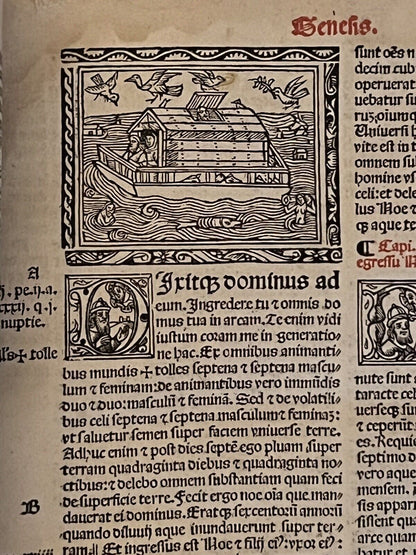 Genesis.
A
nuptie.
tolle
B
Dixitqꝫ dominus ad
eum. Ingredere tu ⁊ omnis do
mus tua in arcam. Te enim vidi
iustum coram me in generatio⸗
ne hac. Ex omnibus animanti⸗
bus mundis ✢ tolles septena ⁊ septena mascu⸗
lum ⁊ feminam: de animantibus vero immūdis
duo ⁊ duo: masculū ⁊ feminā. Sed ⁊ de volatili⸗
bus celi septena ⁊ septena masculum⁊ feminaꝫ:
vt saluetur semen super faciem vniuerse terre.
Adhuc enim ⁊ post dies septē ego pluam super
terram quadraginta diebus ⁊ quadraginta no⸗
ctibus: ⁊ delebo omnem substantiam quam feci
de superficie terre. Fecit ergo noe oīa que man⸗
dauerat ei dominus. Eratqꝫ sexcentorū annorū
quando diluuij aque inundauerunt super ter⸗
ram. Et ingressus est Noe ⁊ filij eiꝰ: vxor eiꝰ:
sunt oēs
operuerat
vebatur
Uniuersi
vite est in
omnem su
homine
celi: et de
lus Noe
qꝫ aque te
¶ Capi.
egressu
nute sunt
taracte cel
verseqꝫ
⁊ ceperūt
es. Requi
septimo
vero aque
mensem.
sis appar
sissent
arce quam